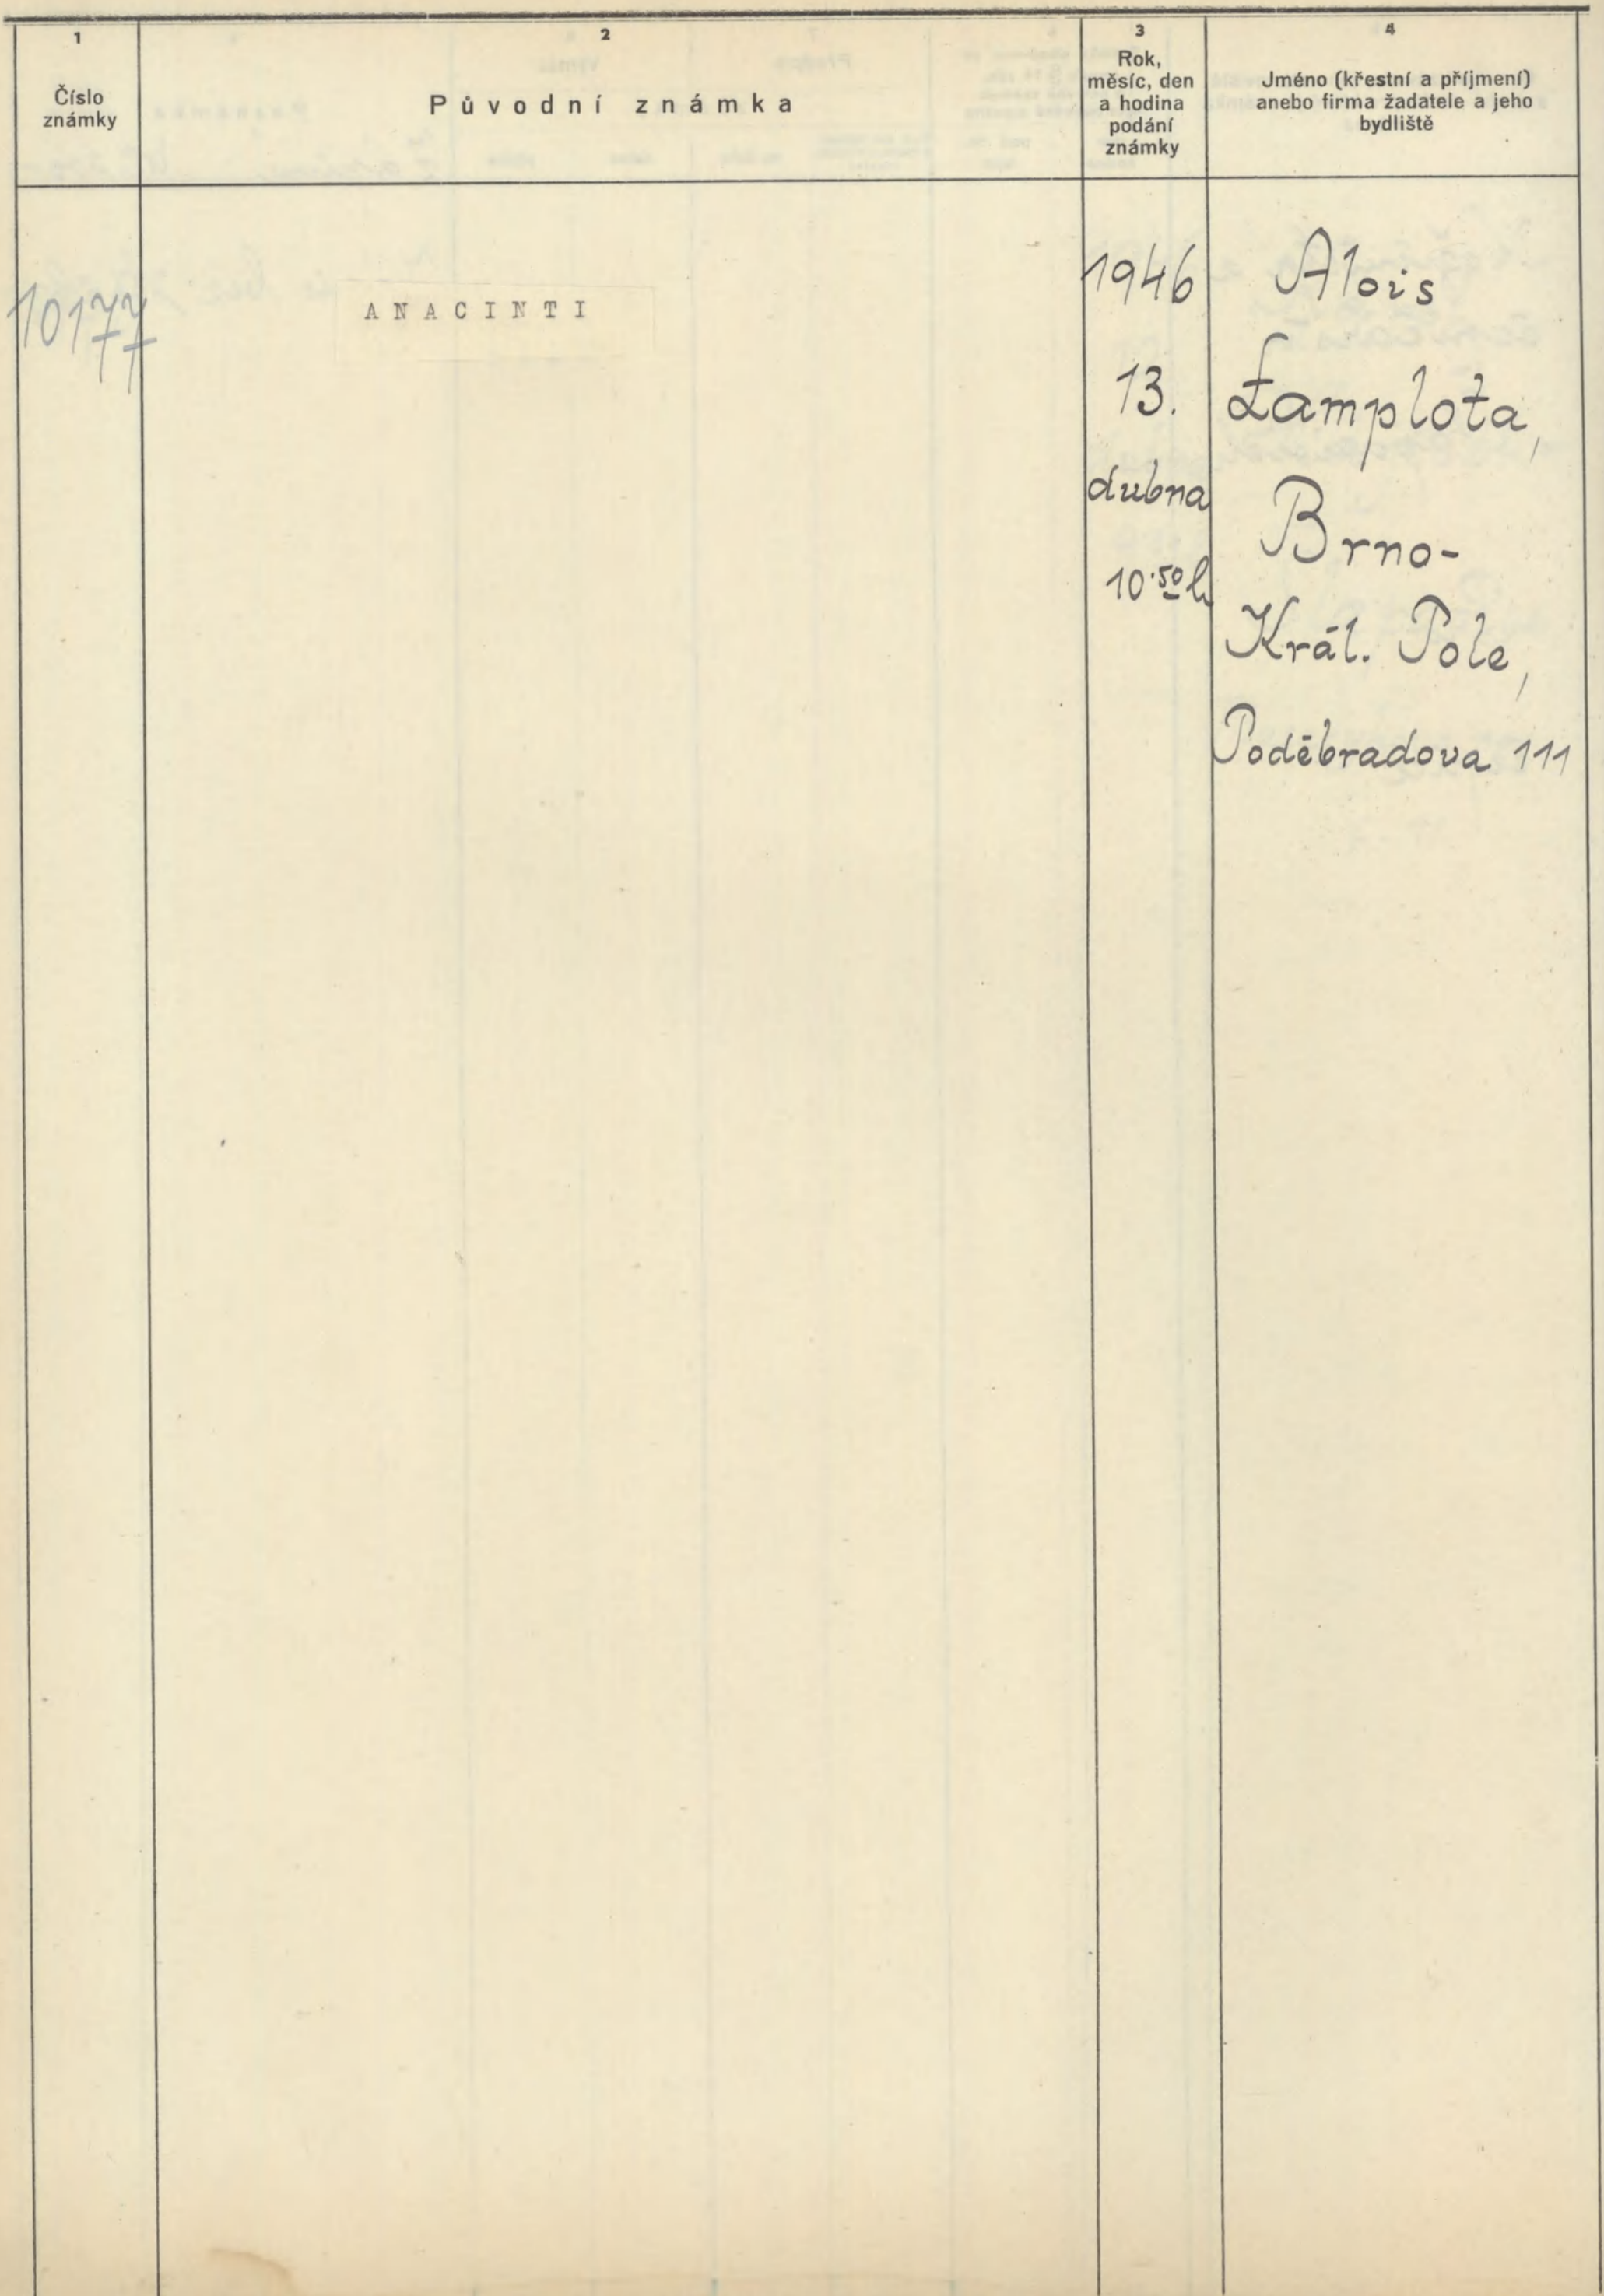 1
Číslo
známky
2
Původní známka
3
Rok,
měsíc, den
a hodina
podání
známky
4
Jméno (křestní a příjmení)
anebo firma žadatele a jeho
bydliště
10177
ANACINTI
1946
13.
dubna
10.50 h
Alois
Lamplota,
Brno-
Král. Pole,
Poděbradova 111